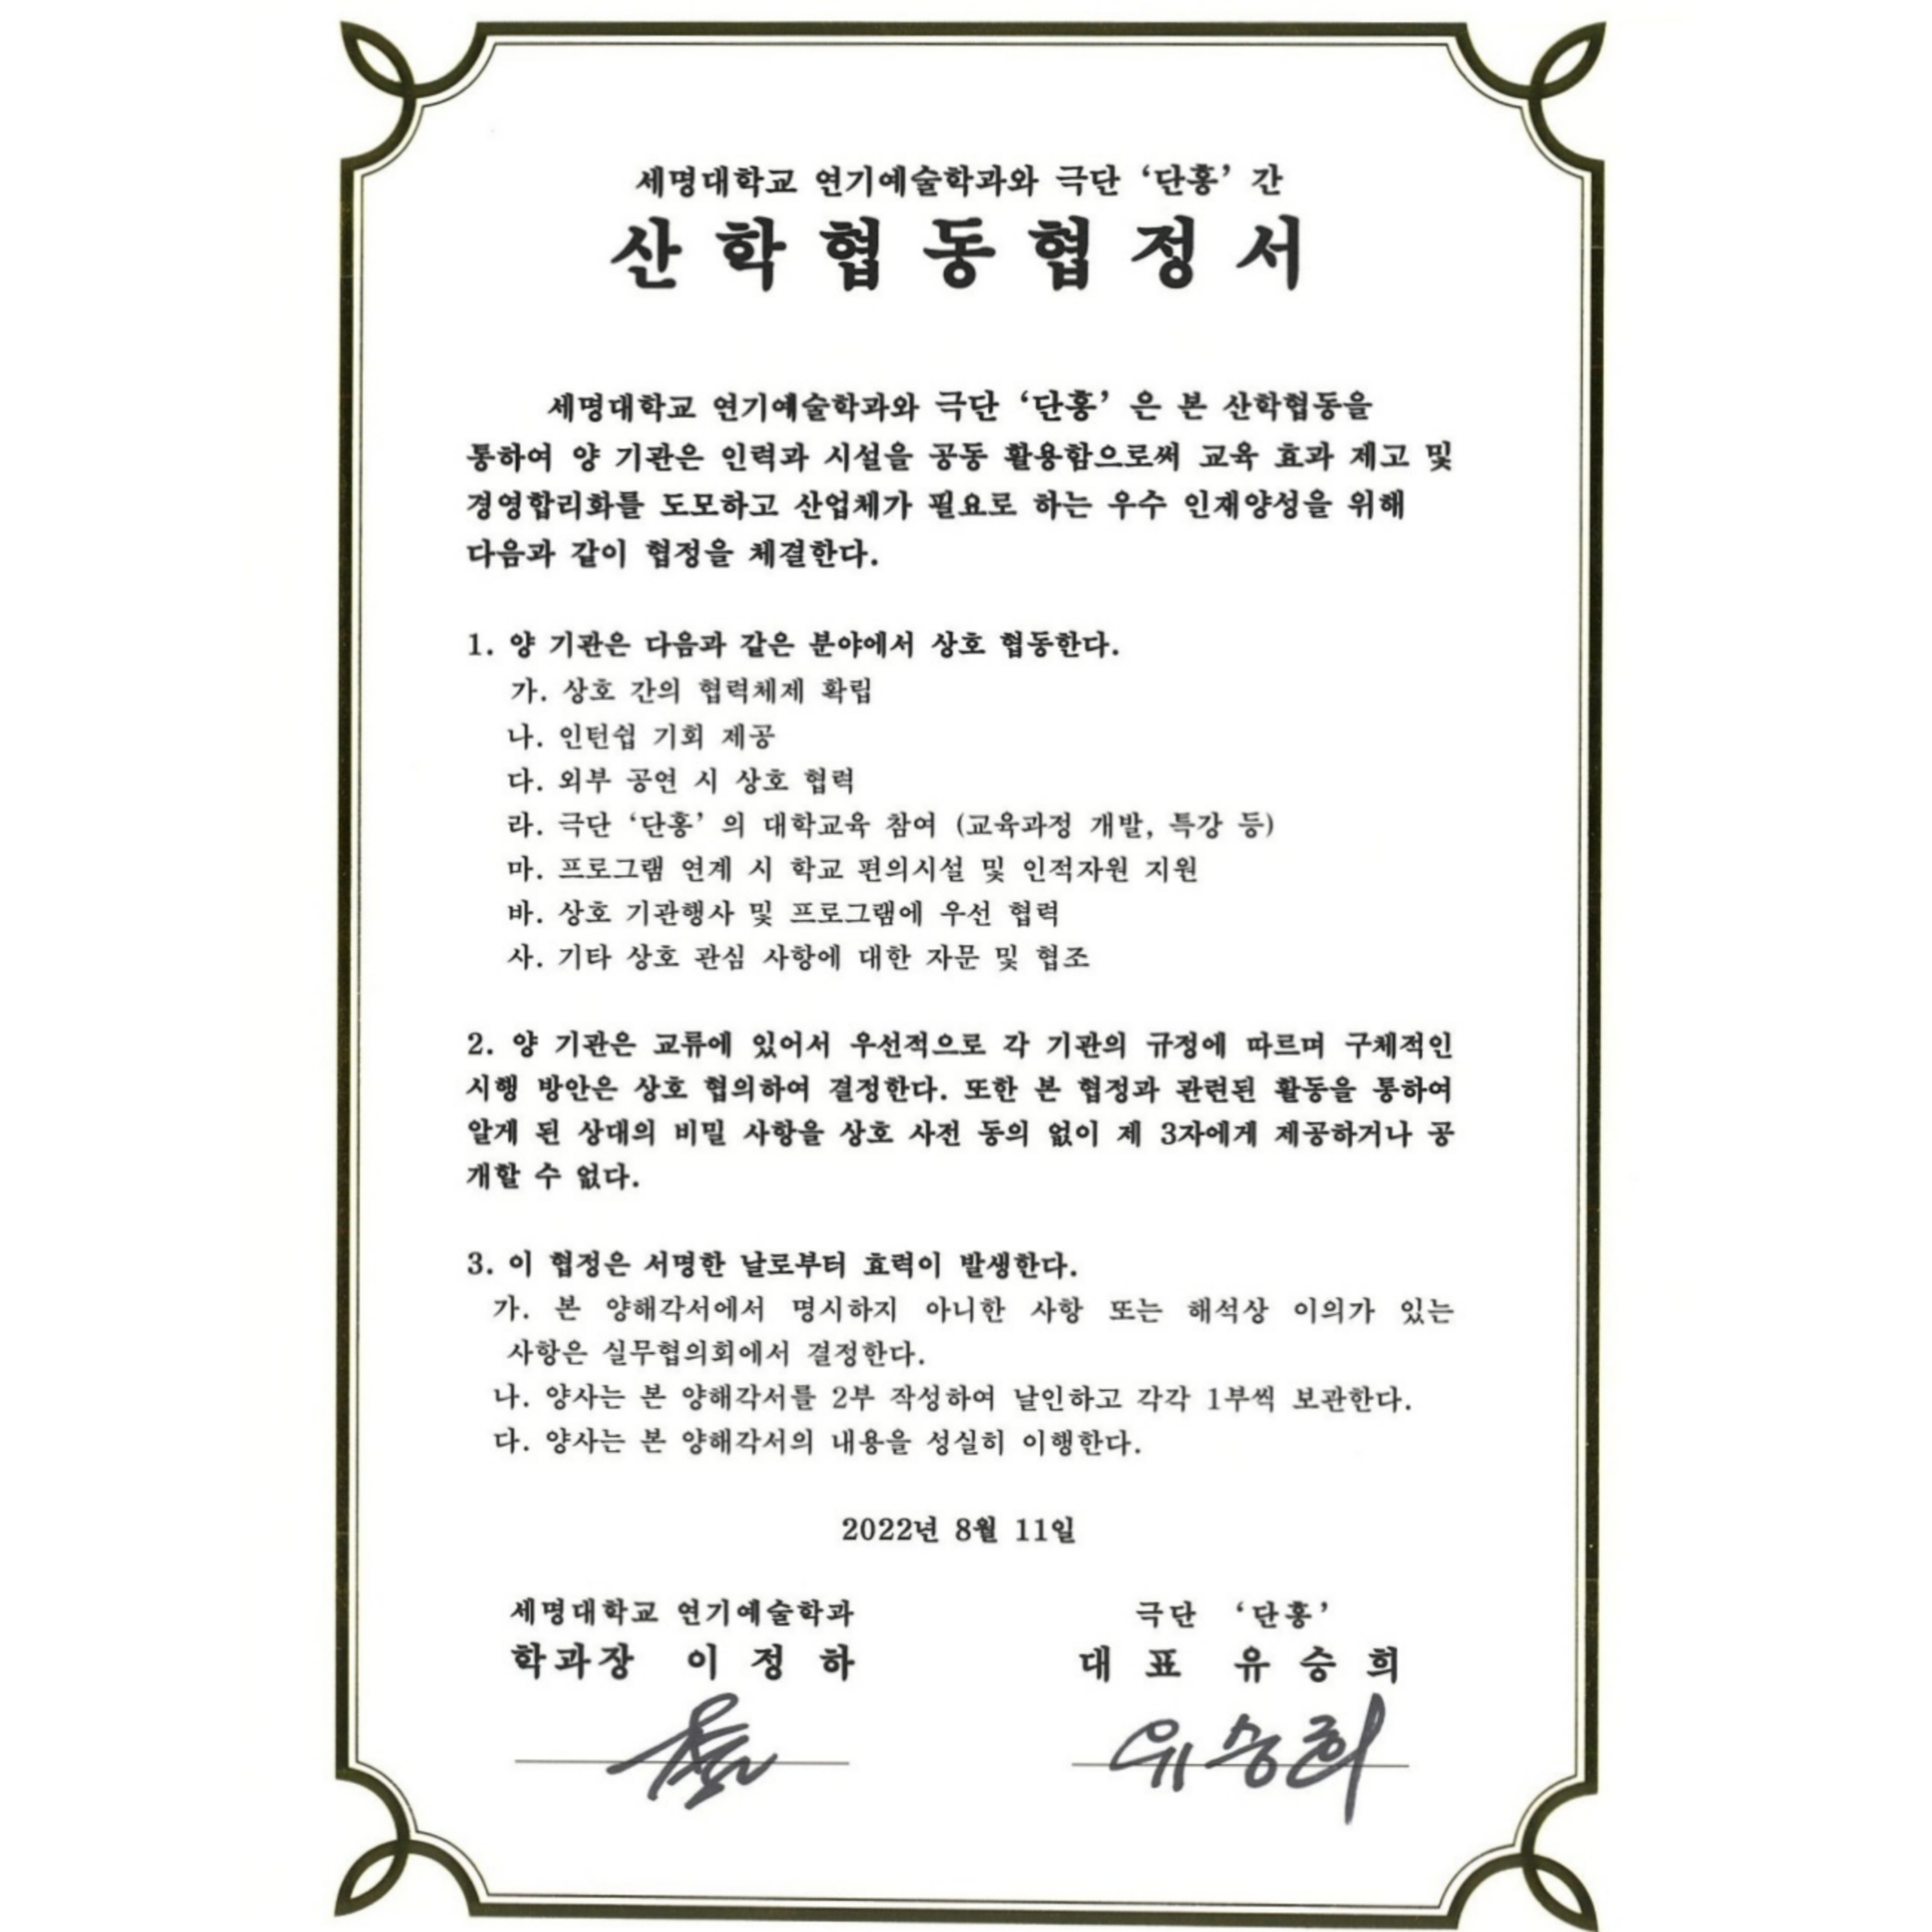 세명대학교 연기예술학과와 극단 ‘단홍’ 간
산학협동협정서
세명대학교 연기예술학과와 극단 ‘단홍’ 은 본 산학협동을
통하여 양 기관은 인력과 시설을 공동 활용함으로써 교육 효과 제고 및
경영합리화를 도모하고 산업체가 필요로 하는 우수 인재양성을 위해
다음과 같이 협정을 체결한다.
1. 양 기관은 다음과 같은 분야에서 상호 협동한다.
가. 상호 간의 협력체제 확립
나. 인턴쉽 기회 제공
다. 외부 공연 시 상호 협력
라. 극단 ‘단홍’ 의 대학교육 참여 (교육과정 개발, 특강 등)
마. 프로그램 연계 시 학교 편의시설 및 인적자원 지원
바. 상호 기관행사 및 프로그램에 우선 협력
사. 기타 상호 관심 사항에 대한 자문 및 협조
2. 양 기관은 교류에 있어서 우선적으로 각 기관의 규정에 따르며 구체적인
시행 방안은 상호 협의하여 결정한다. 또한 본 협정과 관련된 활동을 통하여
알게 된 상대의 비밀 사항을 상호 사전 동의 없이 제 3자에게 제공하거나 공
개할 수 없다.
3. 이 협정은 서명한 날로부터 효력이 발생한다.
가. 본 양해각서에서 명시하지 아니한 사항 또는 해석상 이의가 있는
사항은 실무협의회에서 결정한다.
나. 양사는 본 양해각서를 2부 작성하여 날인하고 각각 1부씩 보관한다.
다. 양사는 본 양해각서의 내용을 성실히 이행한다.
2022년 8월 11일
세명대학교 연기예술학과
학과장 이정하
극단 ‘단홍’
대표 유승희
유승희